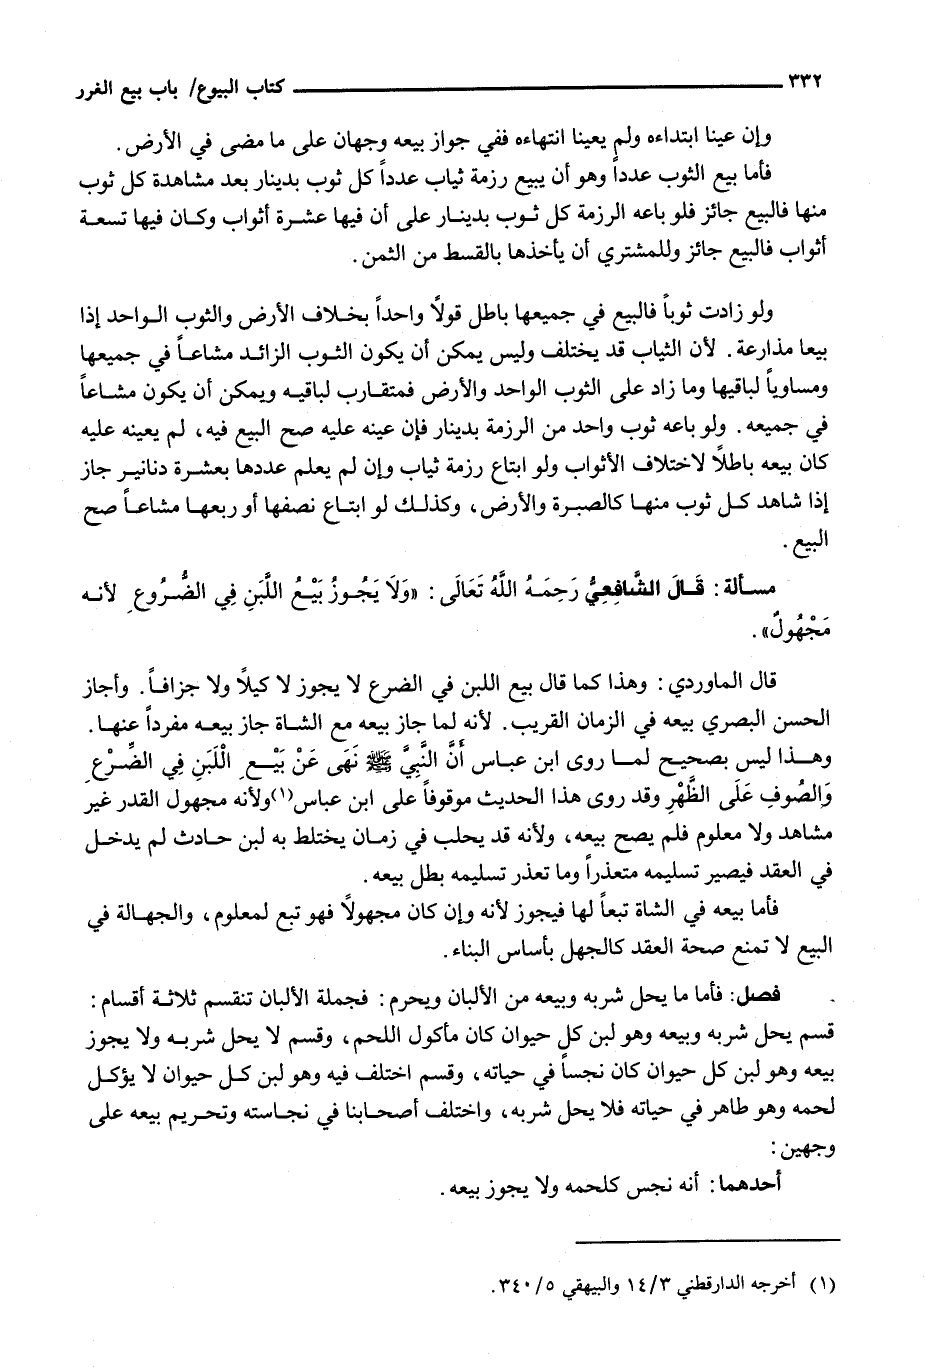 ٣٣٢ كتاب البيوع/ باب بيع الغرر
وإن عينا ابتداءه ولم يعينا انتهاءه ففي جواز بيعه وجهان على ما مضى في الأرض.
فأما بيع الثوب عدداً وهو أن يبيع رزمة ثياب عدداً كل ثوب بدينار بعد مشاهدة كل ثوب
منها فالبيع جائز فلو باعه الرزمة كل ثوب بدينار على أن فيها عشرة أثواب وكان فيها تسعة
أثواب فالبيع جائز وللمشتري أن يأخذها بالقسط من الثمن.
ولو زادت ثوباً فالبيع في جميعها باطل قولاً واحداً بخلاف الأرض والثوب الواحد إذا
بيعا مذارعة. لأن الثياب قد يختلف وليس يمكن أن يكون الثوب الزائد مشاعاً في جميعها
ومساوياً لباقيها وما زاد على الثوب الواحد والأرض فمتقارب لباقيه ويمكن أن يكون مشاعاً
في جميعه. ولو باعه ثوب واحد من الرزمة بدينار فإن عينه عليه صح البيع فيه، لم يعينه عليه
كان بيعه باطلاً لاختلاف الأثواب ولو ابتاع رزمة ثياب وإن لم يعلم عددها بعشرة دنانير جاز
إذا شاهد كل ثوب منها كالصبرة والأرض، وكذلك لو ابتاع نصفها أو ربعها مشاعاً صح
البيع.
مسألة: قَالَ الشَّافِعِيُّ رَحِمَهُ اللَّهُ تَعَالَى: «وَلَا يَجُوزُ بَيْعُ اللَّبَنِ فِي الضُّرُوعِ لأنه
مَجْهُولٌ».
قال الماوردي: وهذا كما قال بيع اللبن في الضرع لا يجوز لا كيلاً ولا جزافاً. وأجاز
الحسن البصري بيعه في الزمان القريب. لأنه لما جاز بيعه مع الشاة جاز بيعه مفرداً عنها.
وهذا ليس بصحيح لما روى ابن عباس أَنَّ النَّبِيَّ ﷺ نَهَى عَنْ بَيْعِ الْلَبَنِ فِي الضِّرْعِ
وَالصُوفِ عَلَى الظَّهْرِ وقد روى هذا الحديث موقوفاً على ابن عباس(١) ولأنه مجهول القدر غير
مشاهد ولا معلوم فلم يصح بيعه، ولأنه قد يحلب في زمان يختلط به لبن حادث لم يدخل
في العقد فيصير تسليمه متعذراً وما تعذر تسليمه بطل بيعه.
فأما بيعه في الشاة تبعاً لها فيجوز لأنه وإن كان مجهولاً فهو تبع لمعلوم، والجهالة في
البيع لا تمنع صحة العقد كالجهل بأساس البناء.
فصل: فأما ما يحل شربه وبيعه من الألبان ويحرم: فجملة الألبان تنقسم ثلاثة أقسام:
قسم يحل شربه وبيعه وهو لبن كل حيوان كان مأكول اللحم، وقسم لا يحل شربه ولا يجوز
بيعه وهو لبن كل حيوان كان نجساً في حياته، وقسم اختلف فيه وهو لبن كل حيوان لا يؤكل
لحمه وهو طاهر في حياته فلا يحل شربه، واختلف أصحابنا في نجاسته وتحريم بيعه على
وجهين:
أحدهما: أنه نجس كلحمه ولا يجوز بيعه.
(١) أخرجه الدارقطني ١٤/٣ والبيهقي ٣٤٠/٥.